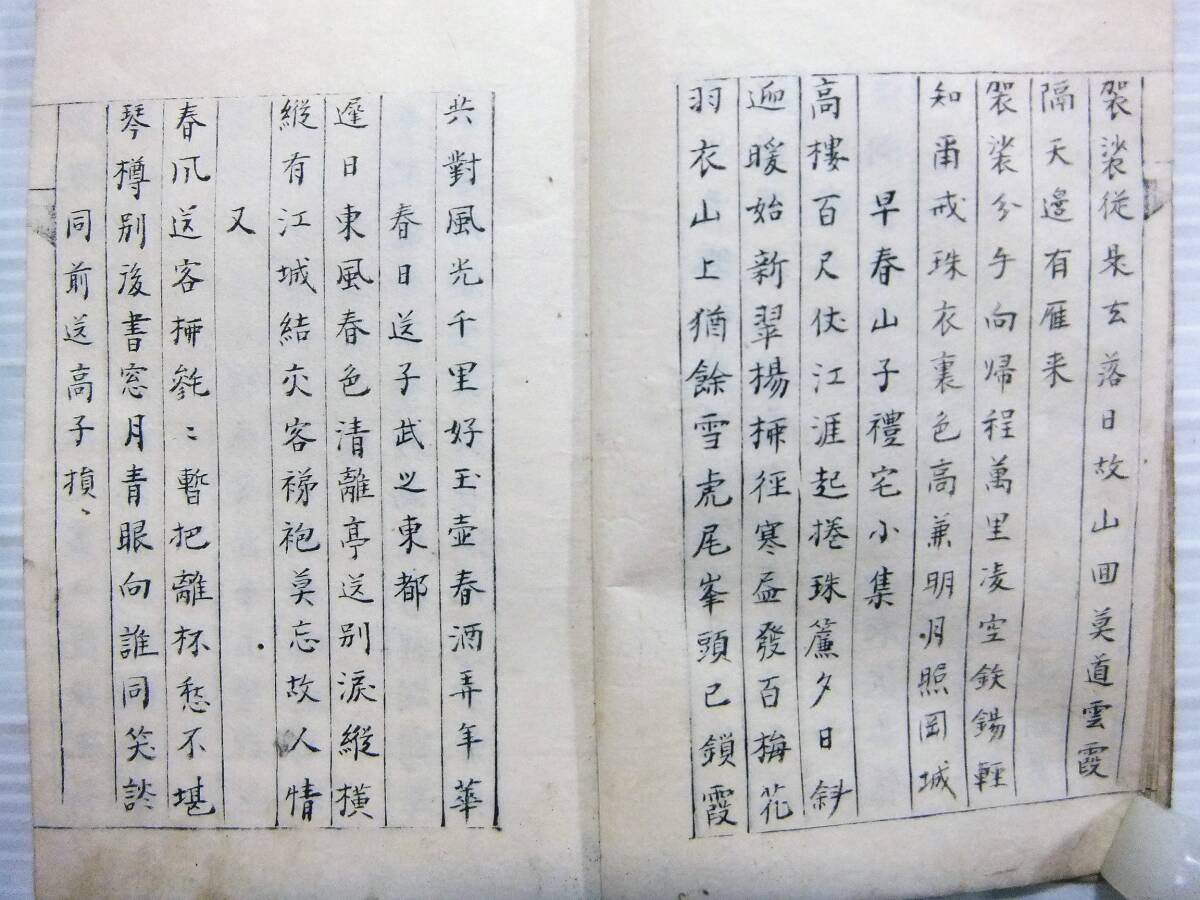 袈裟従是玄落日故山回莫道雲霞
隔天邉有雁来
袈裟分手向帰程萬里凌空鉄錫軽
知甫戒珠衣裏色高兼明月照岡城
早春山子禮宅小集
高樓百尺伏江涯起捲珠簾夕日斜
迎暖始新翠楊柳徑寒益發百梅花
羽衣山上猶餘雪虎尾峯頭已鎖霞
共對風光千里好玉壺春酒弄年華
春日送子武之東都
遲日東風春色清離亭送別淚縱橫
縱有江城結交客袮袍莫忘故人情
又
春風送客柳毿〻暫把離杯愁不堪
琴樽別後書窓月青眼向誰同笑談
同前送高子損〻